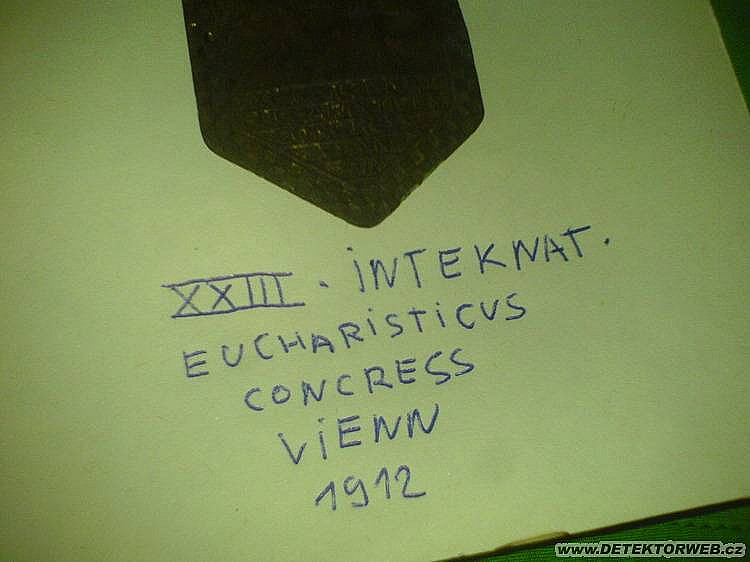 XXIII. INTEKNAT.
EUCHARISTICUS
CONCRESS
VIENN
1912
www.DETEKTORWEB.cz